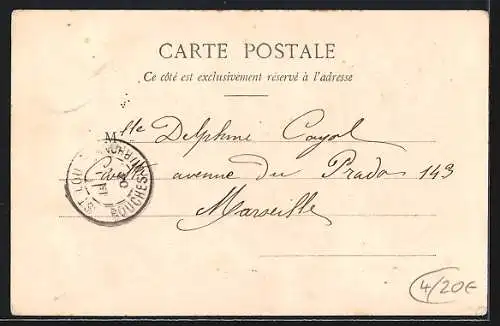 CARTE POSTALE
Ce côté est exclusivement réservé à l'adresse
Mlle Delphine Cayol
avenue du Prado 143
Marseille
ST LOU BOUCHES
4/20€